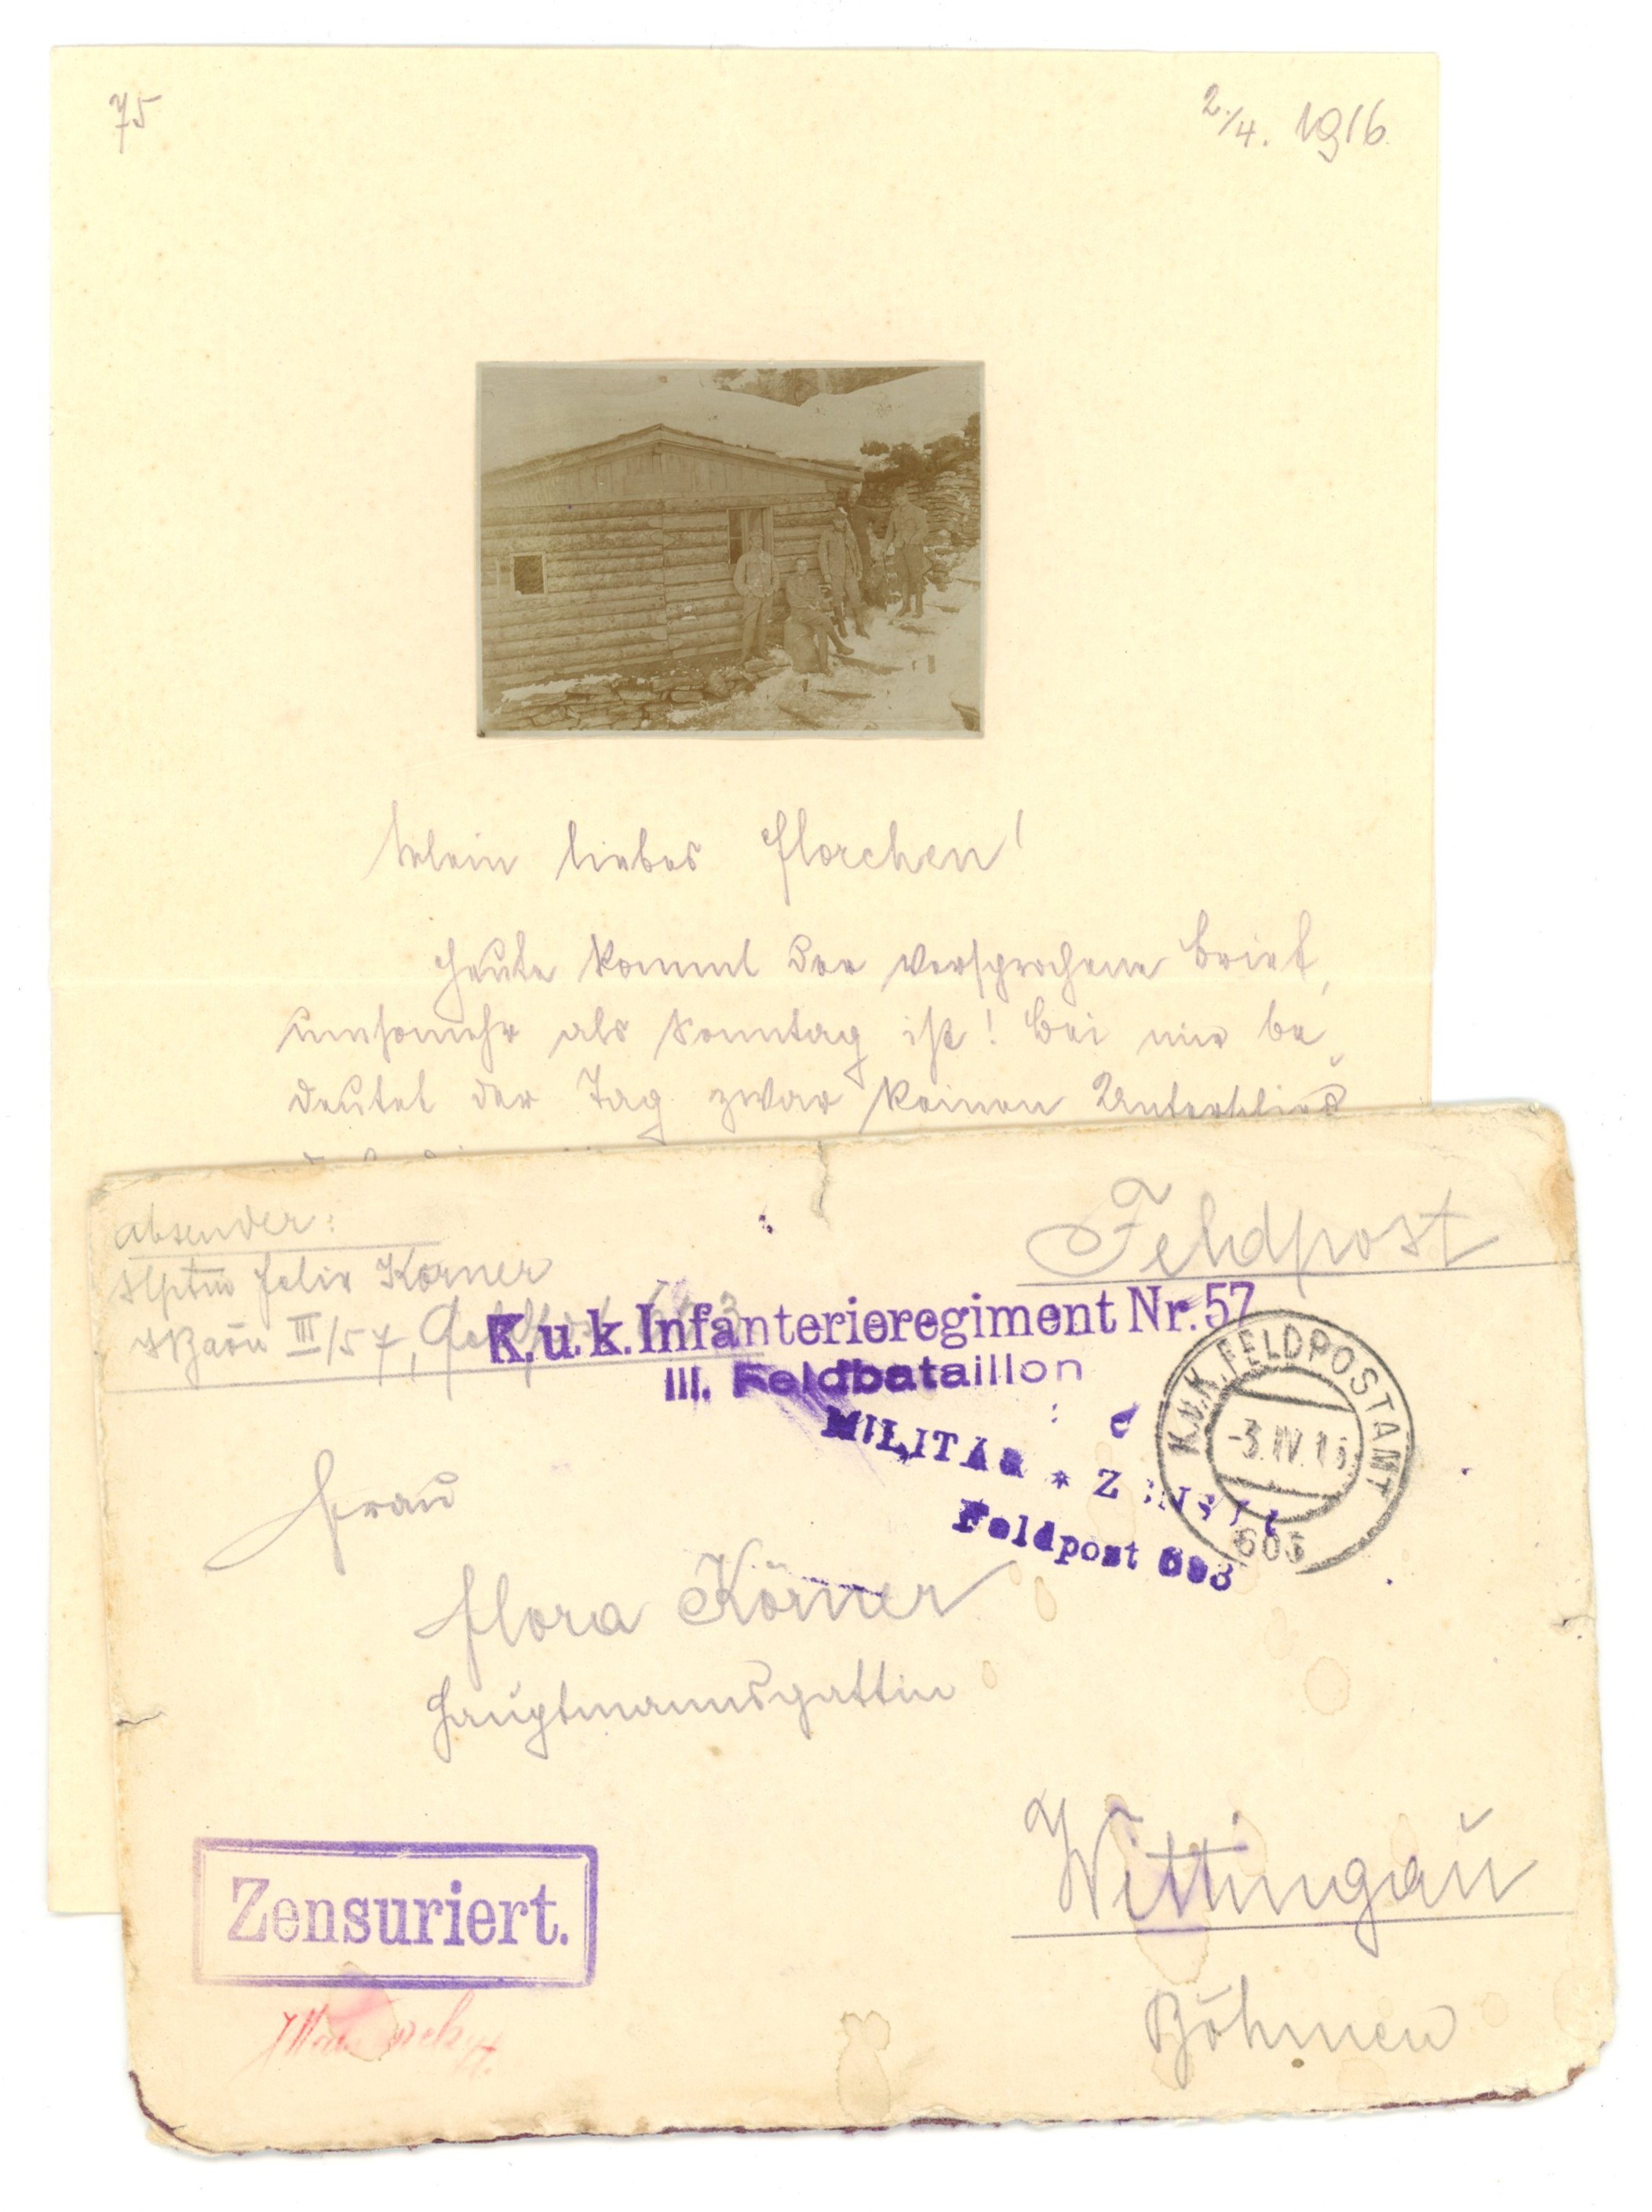 75
2./4. 1916.
Mein liebes Florchen!
Heute kommt der versprochene Brief,
umsomehr als Sonntag ist! Bei mir be„
deutet der Tag zwar keinen Unterschied
Absender:
Hptm Felix Körner
Baon III/57, Feldpost
Feldpost
K.u.k. Infanterieregiment Nr. 57
III. Feldbataillon
MILITÄR * ZENSUR
Feldpost 693
K.u.K. FELDPOSTAMT
-3.IV.16
605
Frau
Flora Körner
Hauptmannsgattin
Wittingau
Böhmen
Zensuriert.